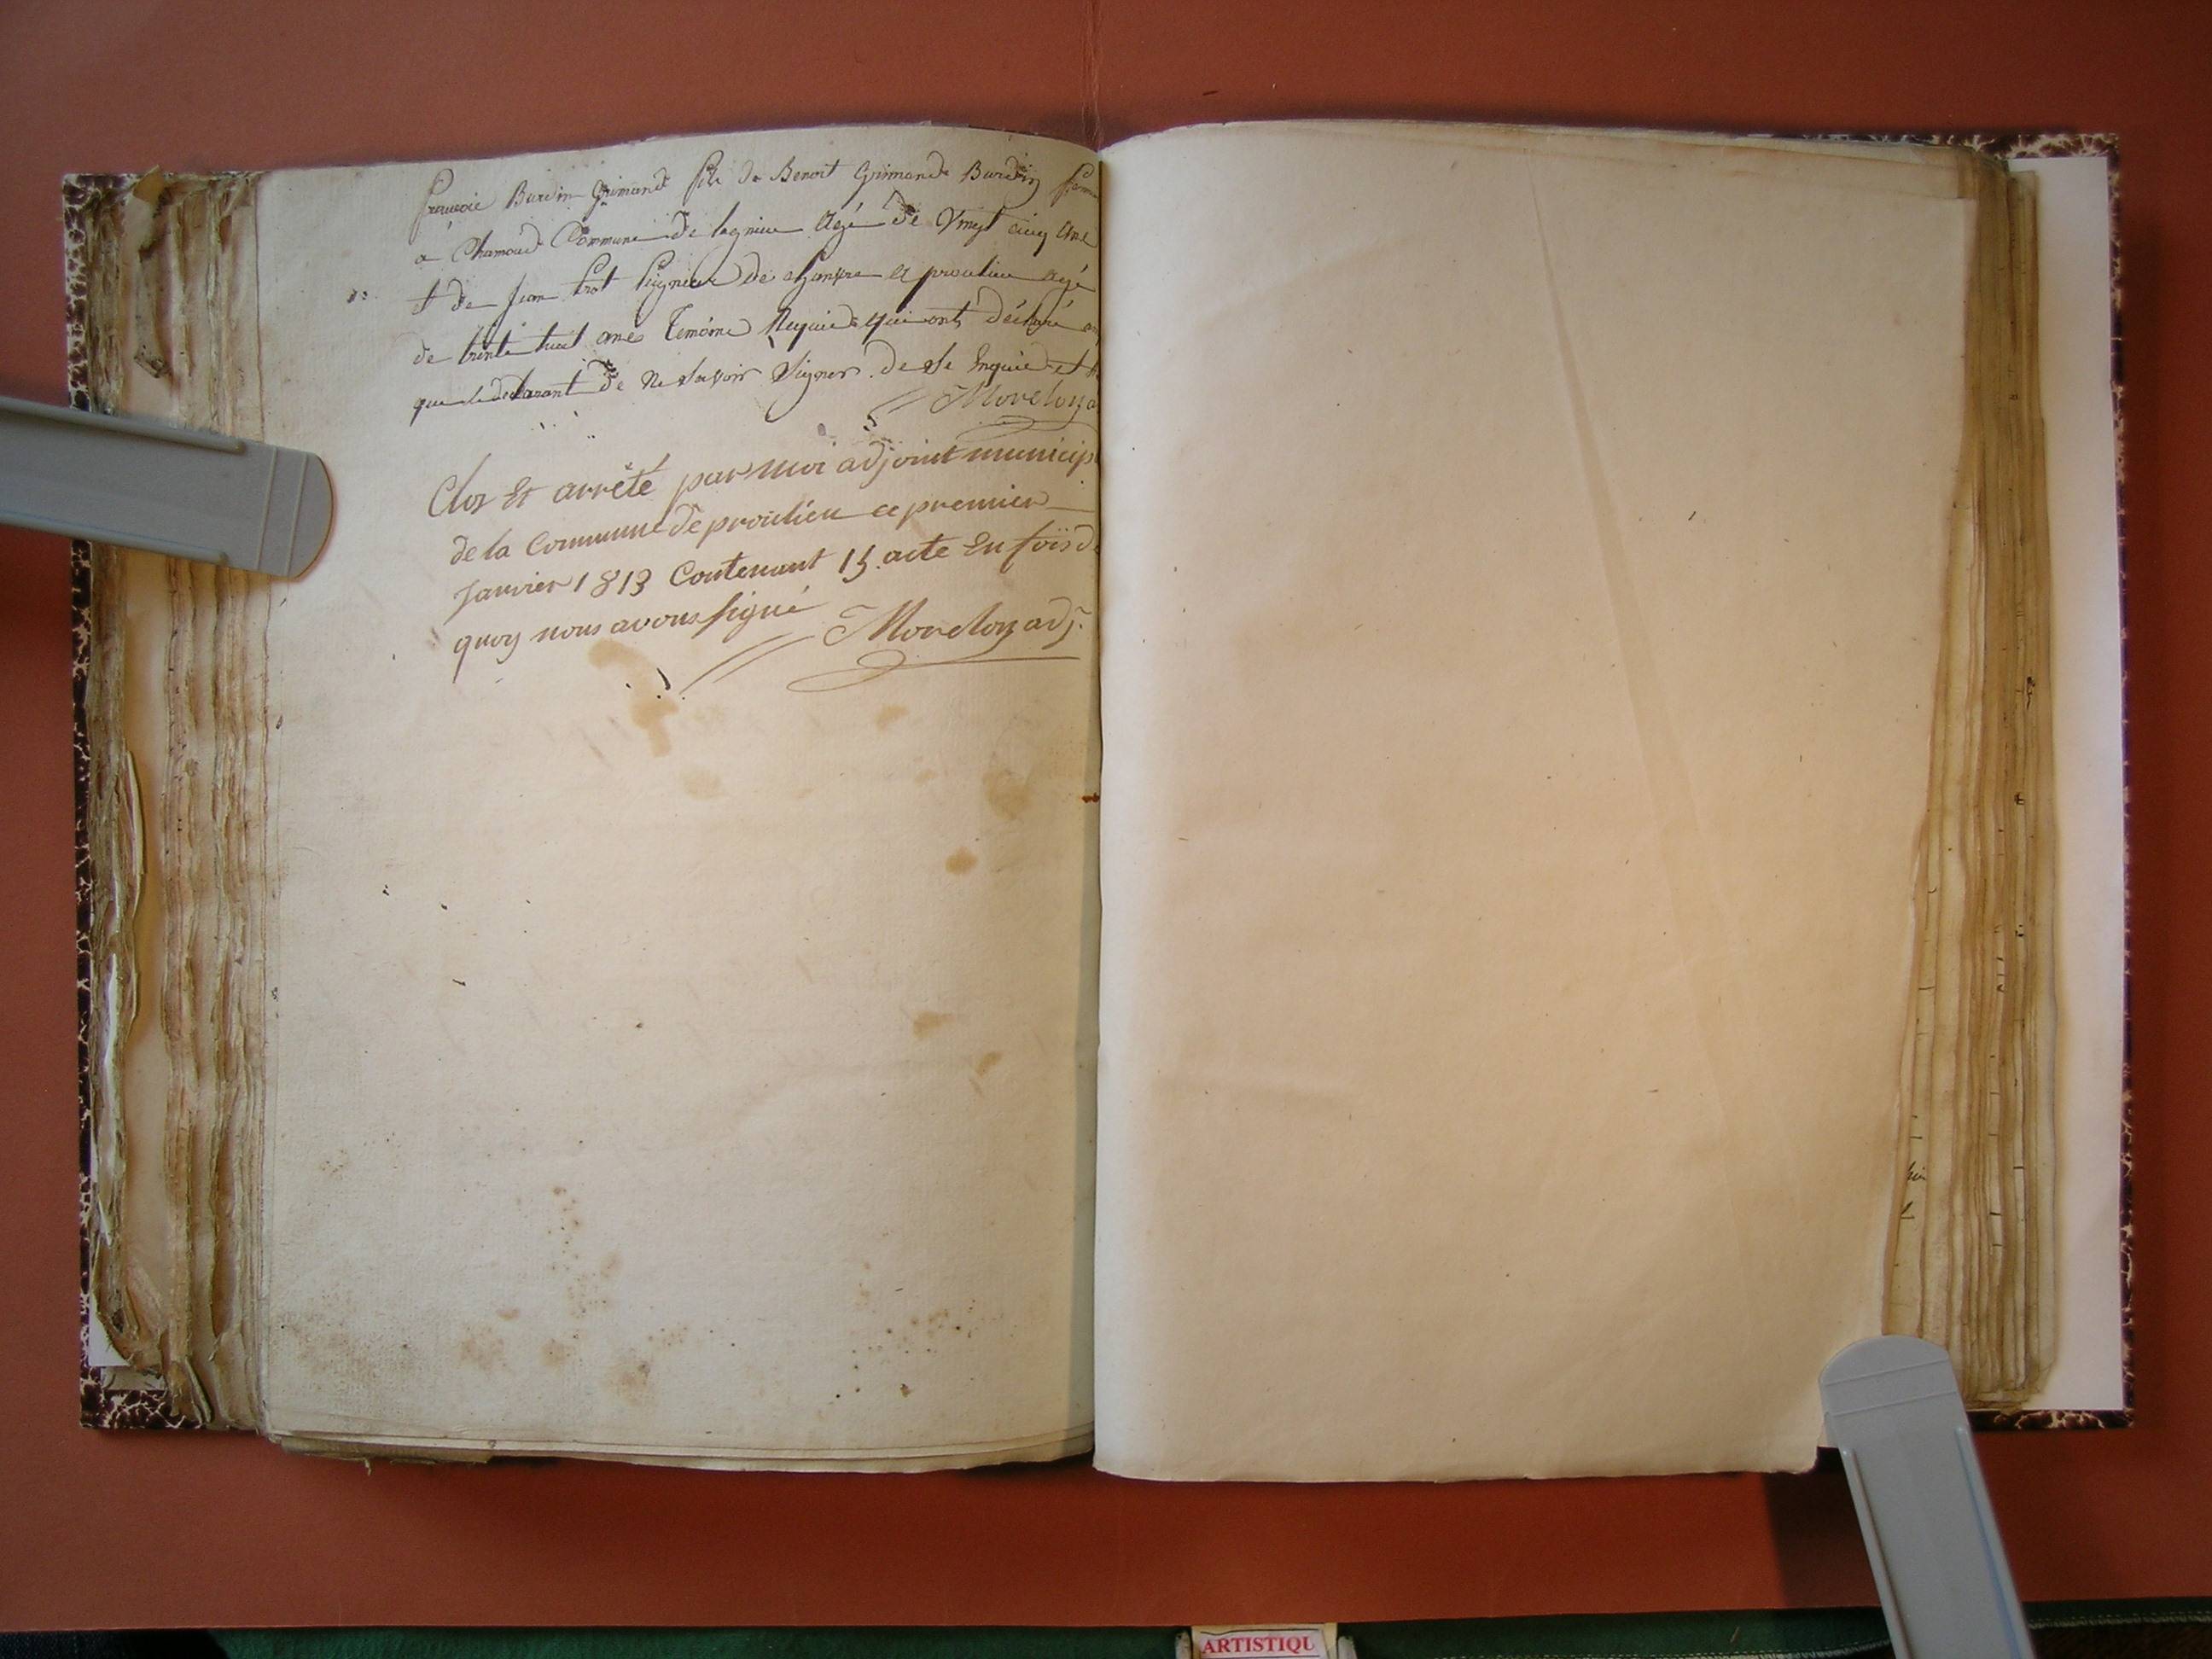 françois Burdin Grimand fils de Benoit Grimand Burdin
a Chamoud Commune de lagnieu Agé de Vingt cinq ans
et de jean trot Peigneur de chanvre a proulieu agé
de trente huit ans Temoins Requis qui ont déclaré
que le declarant de Ne Savoir Signer de Se Enquis et
Morelon
Clos Et arrêté par moi adjoint municip
de la Commune de proulieu ce premier
janvier 1813 Contenant 15 acte En foi de
quoy nous avons signé
Morelon adj.
ARTISTIQU